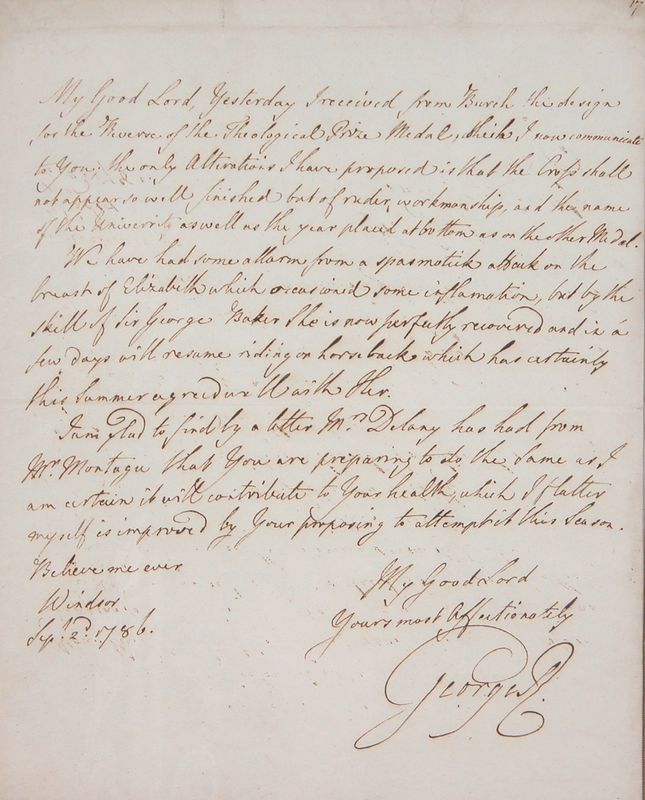 17
My Good Lord, Yesterday I received from Burch the design
for the Reverse of the Theological Prize Medal, which I now communicate
to You; the only Alterations I have proposed is that the Cross shall
not appear so well finished but of ruder workmanship, and the name
of the University as well as the year placed at bottom as on the other Medal.
We have had some allarm from a spasmotick attack on the
breast of Elizabeth which occasioned some inflamation, but by the
skill of Sir George Baker She is now perfectly recovered and in a
few days will resume riding on horseback which has certainly
this Summer agreed well with Her.
I am glad to find by a letter Mrs. Delany has had from
Mrs. Montagu that You are preparing to do the same as I
am certain it will contribute to Your health, which I flatter
myself is improved by Your proposing to attempt it this Season.
Believe me ever
My Good Lord
Windsor
Yours most Affectionately
Sept. 2d. 1786.
George R.